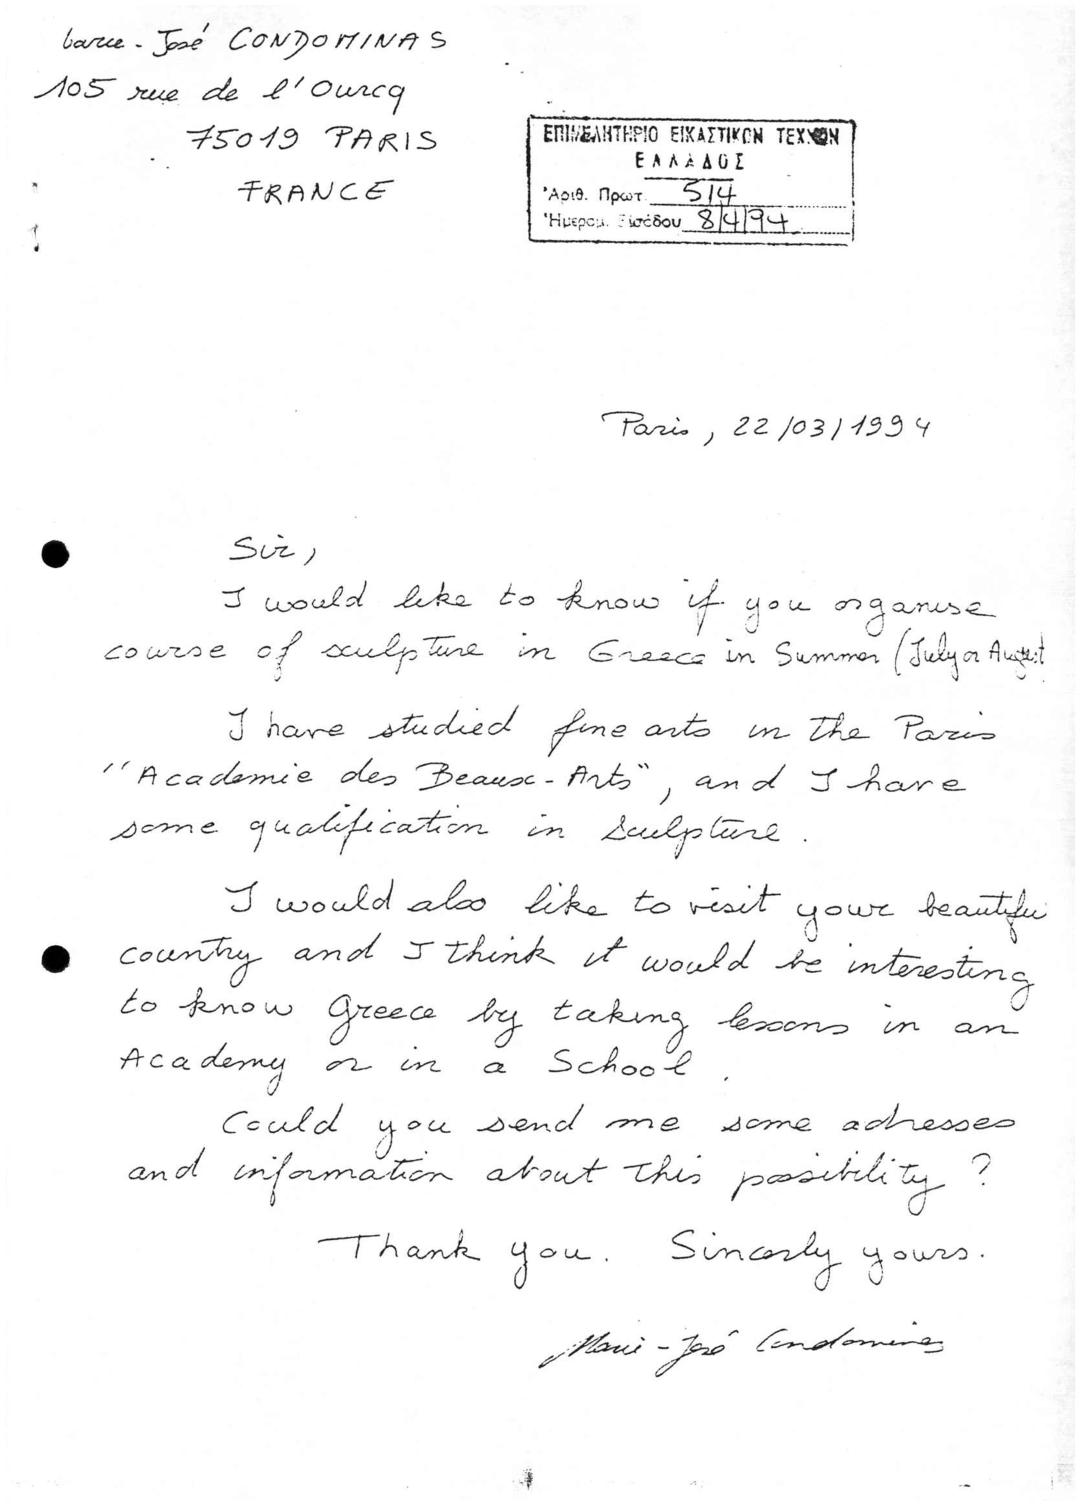 Marie-José CONDOMINAS
105 rue de l'Ourcq
75019 PARIS
FRANCE
ΕΠΙΜΕΛΗΤΗΡΙΟ ΕΙΚΑΣΤΙΚΩΝ ΤΕΧΝΩΝ
ΕΛΛΑΔΟΣ
Ἀριθ. Πρωτ. 514
Ἡμερομ. Εἰσόδου 8/4/94
Paris, 22/03/1994
Sir,
I would like to know if you organise
course of sculpture in Greece in Summer (July or August
I have studied fine arts in the Paris
"Academie des Beaux-Arts", and I have
some qualification in Sculpture.
I would also like to visit your beautiful
country and I think it would be interesting
to know Greece by taking lessons in an
Academy or in a School.
Could you send me some adresses
and information about this possibility ?
Thank you. Sincerly yours.
Marie-José Condominas